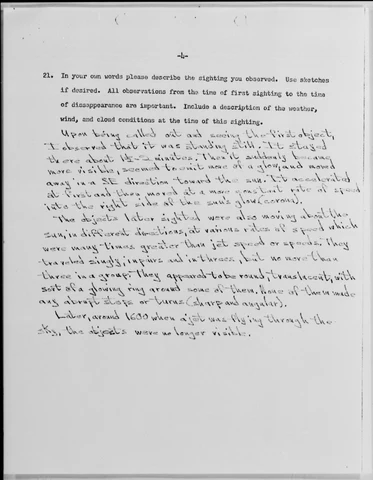 -4-
21. In your own words please describe the sighting you observed. Use sketches
if desired. All observations from the time of first sighting to the time
of disappearance are important. Include a description of the weather,
wind, and cloud conditions at the time of this sighting.
Upon being called out and seeing the first object,
I observed that it was standing still. It stayed
there about 1½-2 minutes. Then it suddenly became
more visible, seemed to emit more of a glow, and moved
away in a SE direction toward the sun. It accelerated
at first and then moved at a more constant rate of speed
into the right side of the sun's glow (corona).
The objects later sighted were also moving about the
sun, in different directions, at various rates of speed which
were many times greater than jet speed or speeds. They
traveled singly, in pairs and in threes, but no more than
three in a group. They appeared to be round, translucent, with
sort of a glowing ring around some of them. None of them made
any abrupt stops or turns (sharp and angular).
Later, around 1630 when a jet was flying through the
sky, the objects were no longer visible.